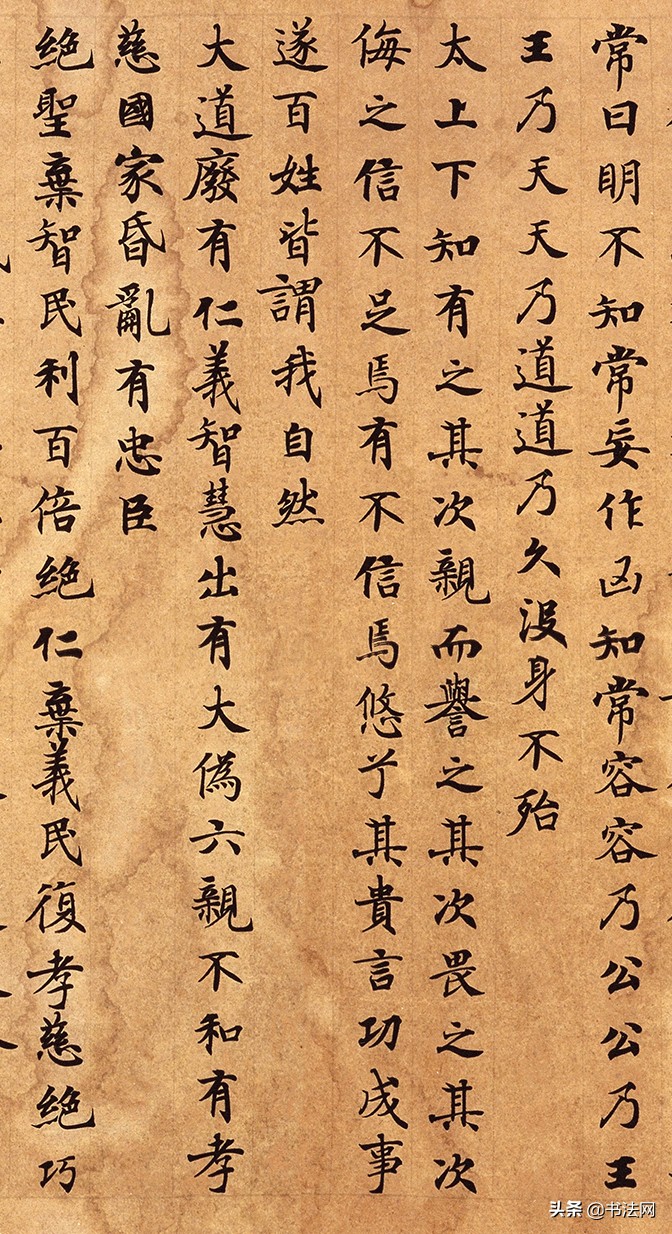 常曰明不知常妄作凶知常容容乃公公乃王
王乃天天乃道道乃久沒身不殆
太上下知有之其次親而譽之其次畏之其次
侮之信不足焉有不信焉悠兮其貴言功成事
遂百姓皆謂我自然
大道廢有仁義智慧出有大偽六親不和有孝
慈國家昏亂有忠臣
絕聖棄智民利百倍絕仁棄義民復孝慈絕巧
头条 @书法网